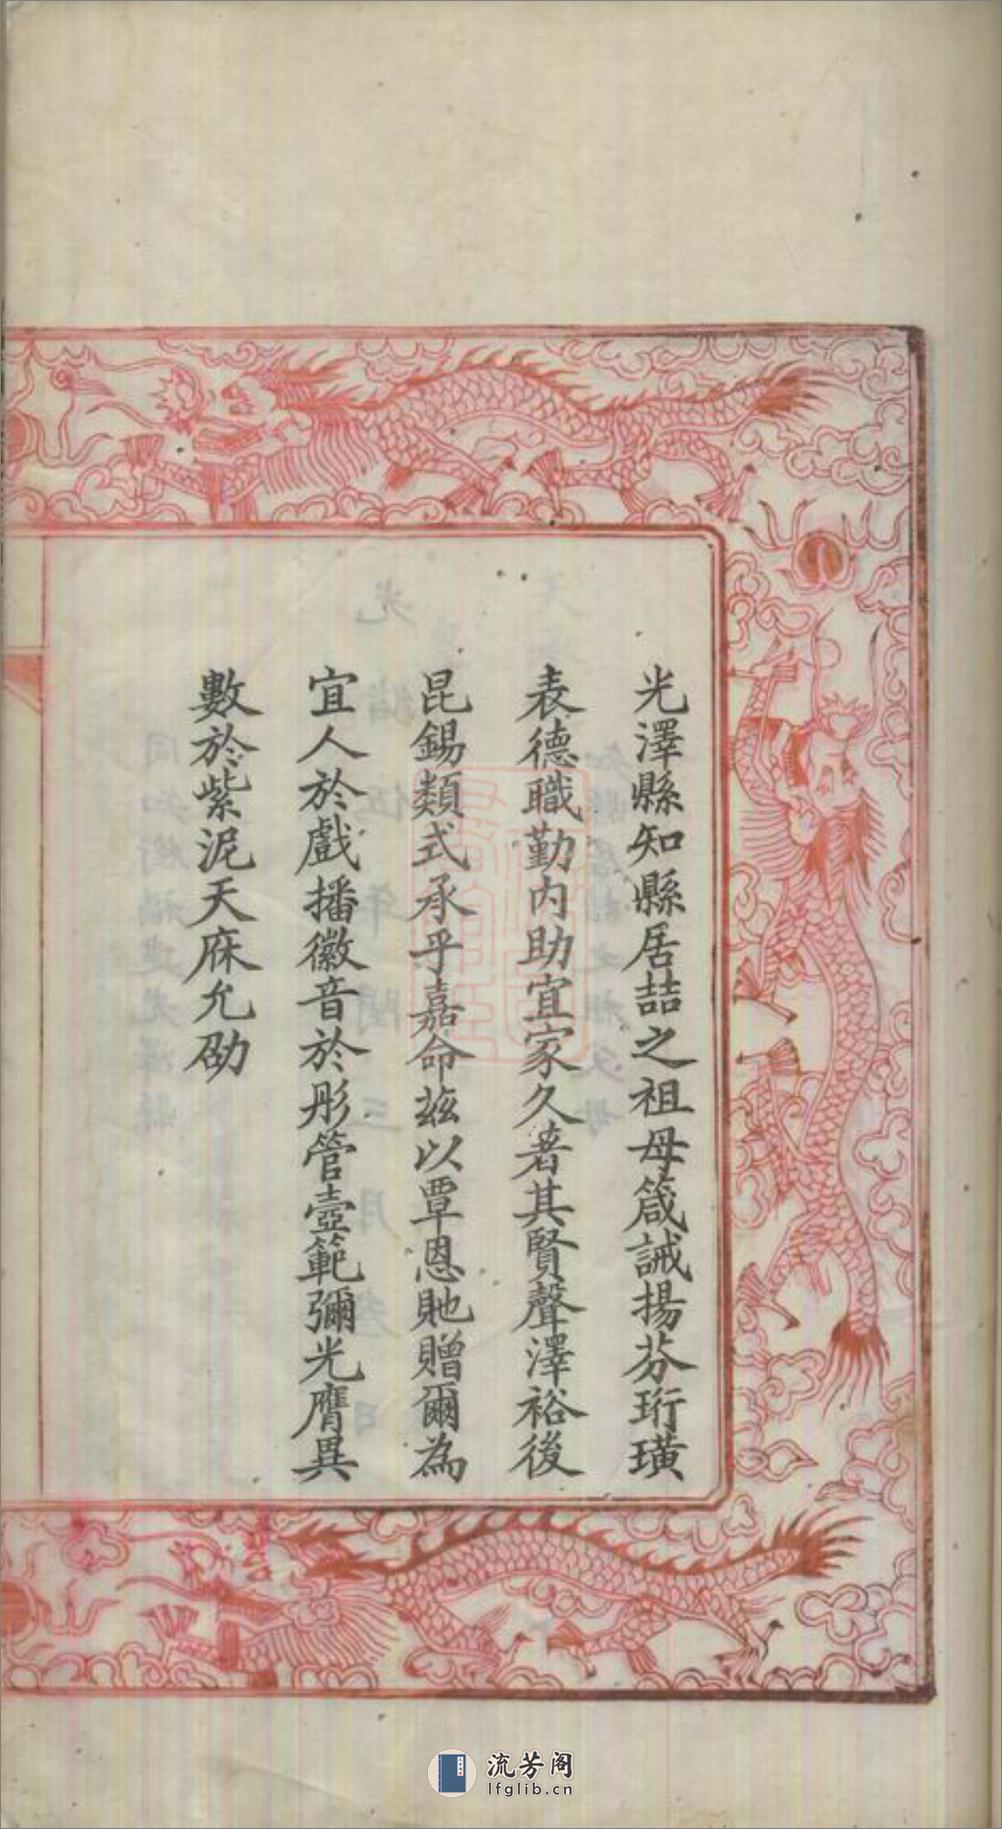 光澤縣知縣居喆之祖母箴誡揚芬珩璜
表德職勤內助宜家久著其賢聲澤裕後
昆錫類式承乎嘉命茲以覃恩貤贈爾為
宜人於戲播徽音於彤管壼範彌光膺異
數於紫泥天庥允劭
流芳阁
lfglib.cn